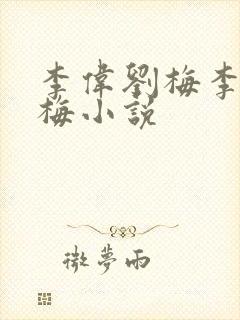 李偉劉梅李
梅小說
微夢雨